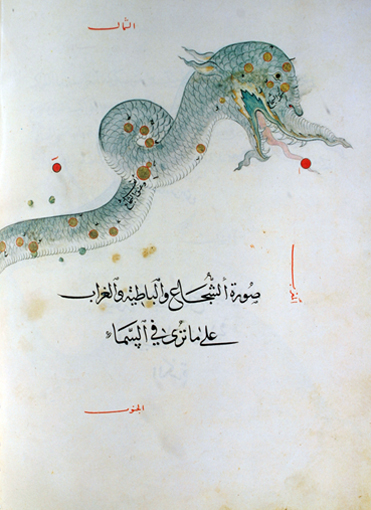 الشمال
صورة الشجاع والباطية والغراب
على ما ترى في السماء
الجنوب